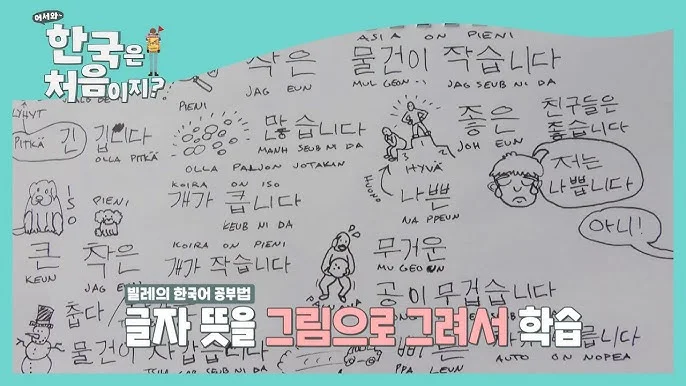 어서와~
한국은
처음이지?
ASIA ON PIENI
작은 물건이 작습니다
PIENI JAG EUN MUL GEON-I JAG SEUB NI DA
LYHYT
PITKÄ
긴 깁니다
OLLA PITKÄ
많습니다
MANH SEUB NI DA
OLLA PALJON JOTAKAN
좋은
JOH EUN
친구들은
좋습니다
HYVÄ
HUONO
나쁜
NA PPEUN
저는
나쁩니다
아니!
ISO
PIENI
KOIRA ON ISO
개가 큽니다
KEUB NI DA
큰 작은
KEUN JAG EUN
KOIRA ON PIENI
개가 작습니다
무거운
MU GEO UN
공이 무겁습니다
춥다/
물건이
빌레의 한국어 공부법
글자 뜻을 그림으로 그려서 학습
PPA LEUN
AUTO ON NOPEA